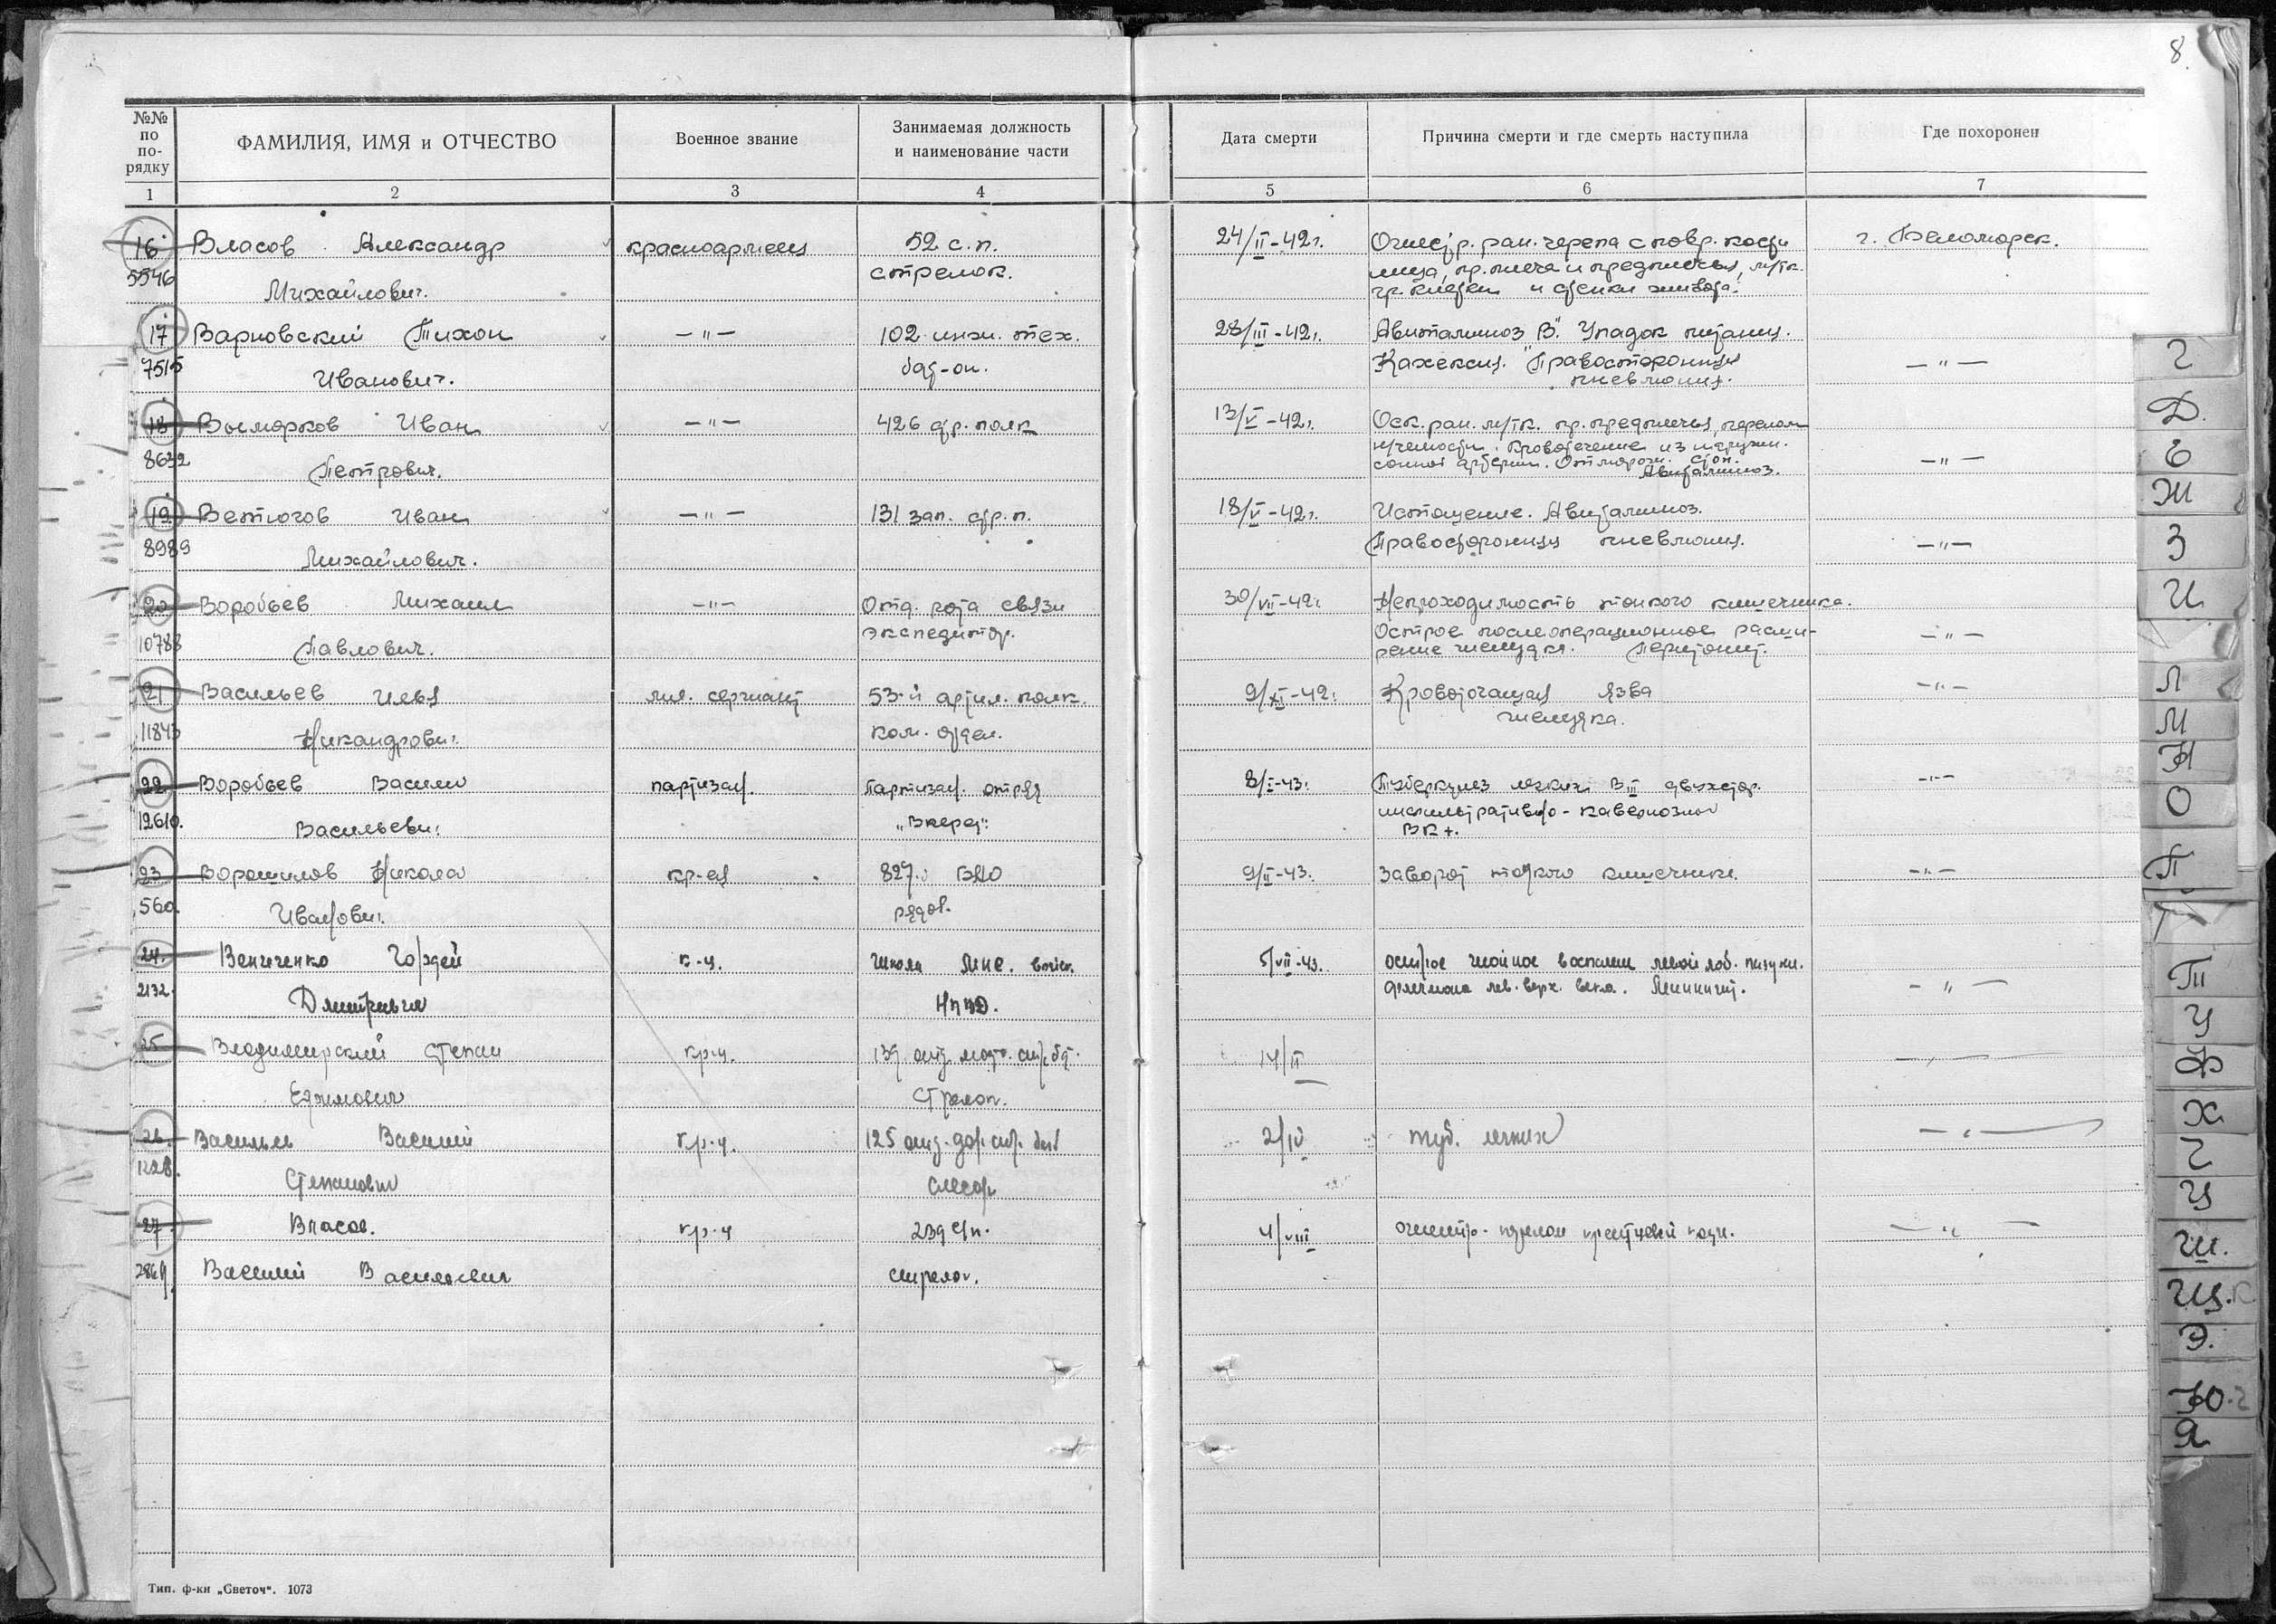 8.
№№ по по-рядку
ФАМИЛИЯ, ИМЯ и ОТЧЕСТВО
Военное звание
Занимаемая должность
и наименование части
Дата смерти
Причина смерти и где смерть наступила
Где похоронен
1 2 3 4 5 6 7
16 Власов Александр красноармеец 52 с.п. 24/II-42г. Огнестр. ран. черепа с повр. кости г. Беломорск.
5546 стрелок. лица, пр. плеча и предплечья, м/тк.
Михайлович. гр. клетки и стенки живота.
17 Варновский Тихон —"— 102 инж. тех. 28/III-42г. Авитаминоз "В". Упадок питания.
7515 Иванович. бат-он. Кахексия. Правосторонняя —"—
пневмония.
18 Выморков Иван —"— 426 стр. полк 13/V-42г. Оск. ран. м/тк. пр. предплечья, перелом
8632 Петрович. Кровотечение из
сонной артерии. Отморож. стоп. —"—
Авитаминоз.
19 Ветюгов Иван —"— 131 зап. стр. п. 18/V-42г. Истощение. Авитаминоз.
8989 Михайлович. Правосторонняя пневмония. —"—
20 Воробьев Михаил —"— Отд. рота связи 30/VII-42г. Непроходимость тонкого кишечника.
10788 экспедитор. Острое послеоперационное расши-
Павлович. рение желудка. Перитонит. —"—
21 Васильев Илья мл. сержант 53-й артил. полк. 9/XI-42г. Кровоточащая язва —"—
11843 Никандрович. ком. отдел. желудка.
22 Воробьев Василий партизан. Партизан. отряд 8/I-43г. Туберкулез легких В III двухстор. —"—
12610. Васильевич. „Вперед". инфильтративно-кавернозный
ВК+.
23 Ворошилов Николай кр-ец 827 БАО 9/II-43г. Заворот тонкого кишечника. —"—
560. Иванович. рядов.
24. Венченко Гордей к-ц. школа 5/VII-43. острое гнойное воспален. левой лоб. пазухи.
2132. Дмитриевич флегмона лев. верх. века. Менингит. —"—
25 Владимирский Степан кр-ц. 139 отд. 14/II —"—
Ефимович Стрелок.
26. Васильев Василий кр-ц. 125 отд. дор. стр. бат 2/IV туб. легких —"—
1228. Степанович слесарь
27. Власов. кр-ц 239 с/п. 4/VIII —"—
2869. Василий Васильевич стрелок.
Тип. ф-ки „Светоч". 1073
Г
Д.
Е
Ж
З
И
Л
М
Н
О
П
Т
У
Ф
Х
Ц
Ш.
Щ.
Э.
Ю
Я